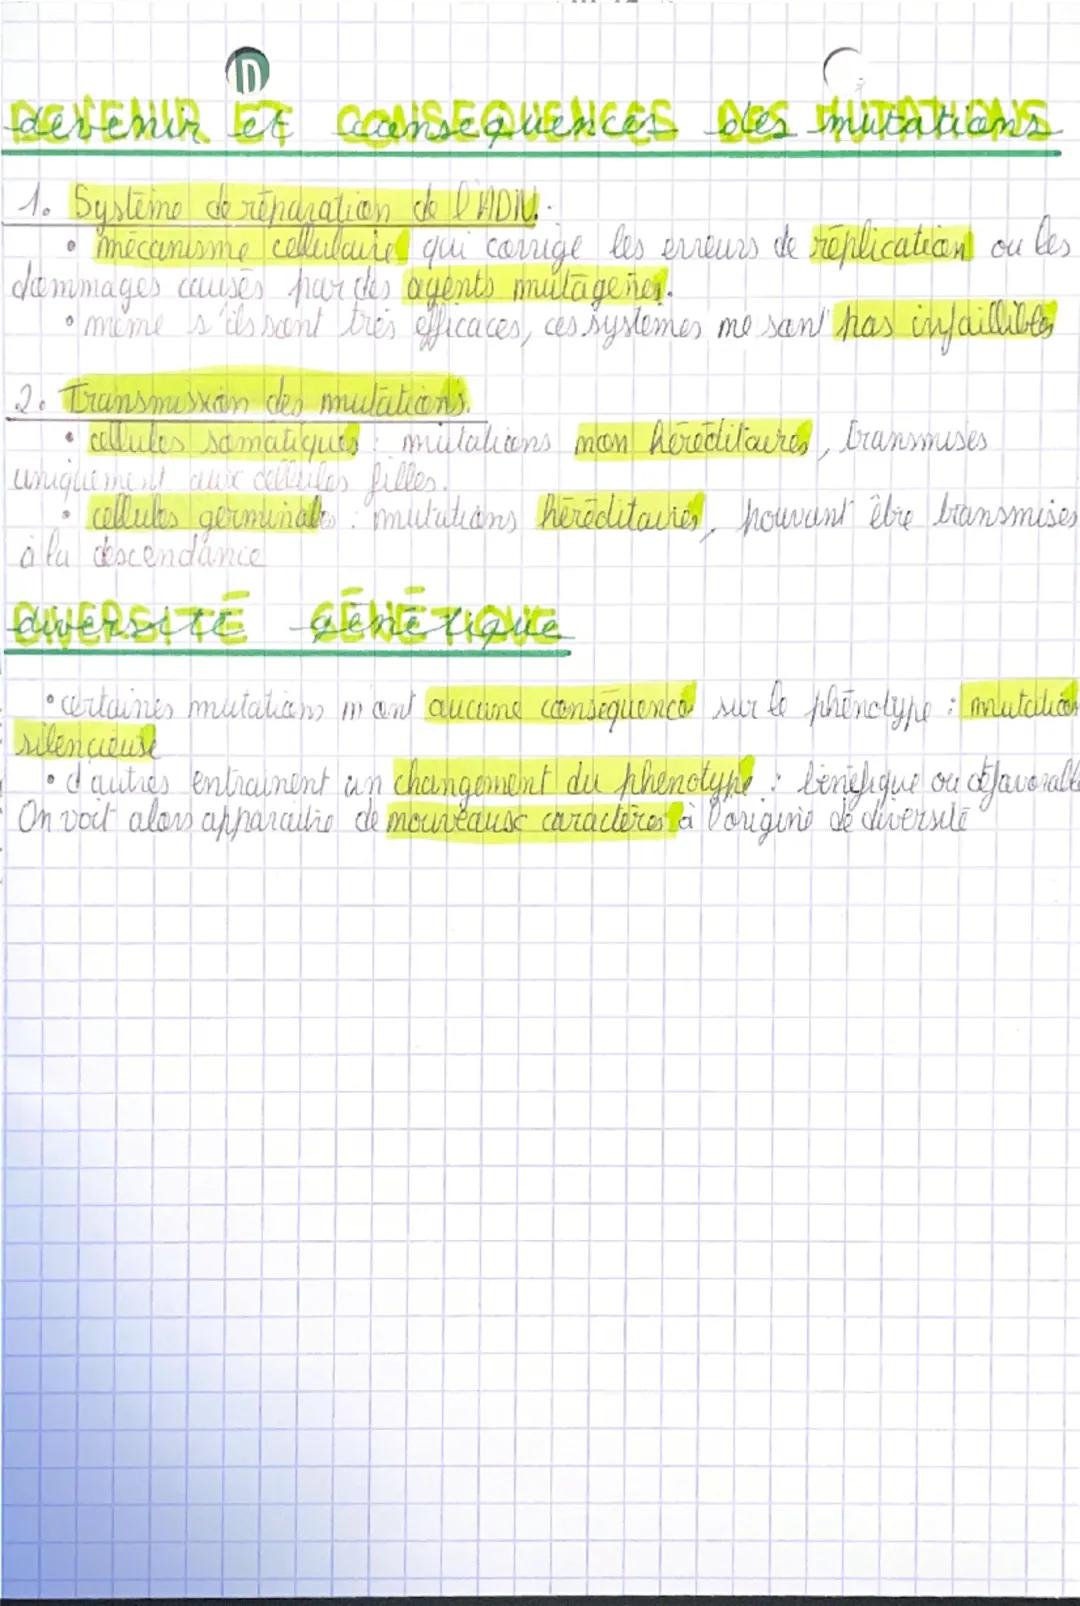 devenir et conséquences des mutations
1. Système de réparation de l'ADN.
• mécanisme cellulaire qui corrige les erreurs de réplication ou les
dommages causés par des agents mutagènes.
• même s'ils sont très efficaces, ces systèmes ne sont pas infaillibles
2. Transmission des mutations.
• cellules somatiques : mutations non héréditaires, transmises
uniquement aux cellules filles.
• cellules germinales : mutations héréditaires, pouvant être transmises
à la descendance
diversité génétique
• certaines mutations n'ont aucune conséquence sur le phénotype : mutation
silencieuse
• d'autres entrainent un changement du phénotype : bénéfique ou défavorable
On voit alors apparaître de nouveaux caractères à l'origine de diversité